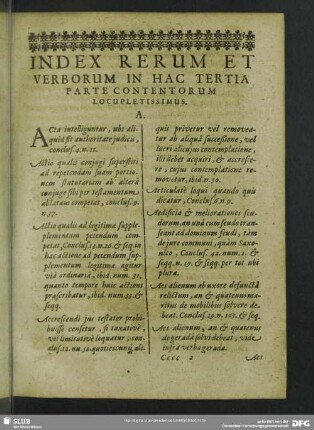 INDEX RERUM ET
VERBORUM IN HAC TERTIA
PARTE CONTENTORUM
LOCUPLETISSIMUS.
A.
ACta intelliguntur, ubi ali-
quid sit authoritate judicii,
conclus. 4. n. 11.
Actio qualis conjugi superstiti
ad repetendam suam portio-
nem statutariam ab altero
conjuge sibi per testamentum
ablatam competat, conclus. 9.
n. 57.
Actio qualis ad legitimæ supple-
plementum petendum compe-
tat, Conclus. 13. n. 28. & seq. in
hac actione ad petendum sup-
plementum legitimæ agitur
viâ ordinariâ, ibid. num. 31,
quanto tempore huic actioni
præscribatur, ibid. num. 33. &
seqq.
Accrescendi jus testator prohi-
buisse censetur, si taxativè
vel limitativè loquatur, con-
clus. 12. nu. 30. quotiescunq; ali-
quis privetur vel removea-
tur ab aliquâ successione, vel
lucri alicujus contemplatione,
isti debet acquiri, & accresce-
re, cujus contemplatione re-
movetur, ibid. n. 30.
Articulatè loqui quando quis
dicatur, Conclus. 8. n 9.
Aedificia & meliorationes feu-
dorum an unà cum feudo trans-
eant ad dominum feudi, tàm
de jure communi, quàm Saxo-
nico, Conclus. 42. num. 1. &
seqq. n. 19. & seqq. per tot ubi
plura.
Aes alienum ab uxore defunctâ
relictum, an & quatenus ma-
ritus de mobilibus solvere de-
beat. Conclus. 29. n. 103. & seq.
Aes alienum, an & quatenus
de geradâ solvi debeat, vide
infrà verbo gerada.
Cccc 2
Aes
SLUB
Wir führen Wissen.
gefördert von der
Deutschen Forschungsgemeinschaft
DFG